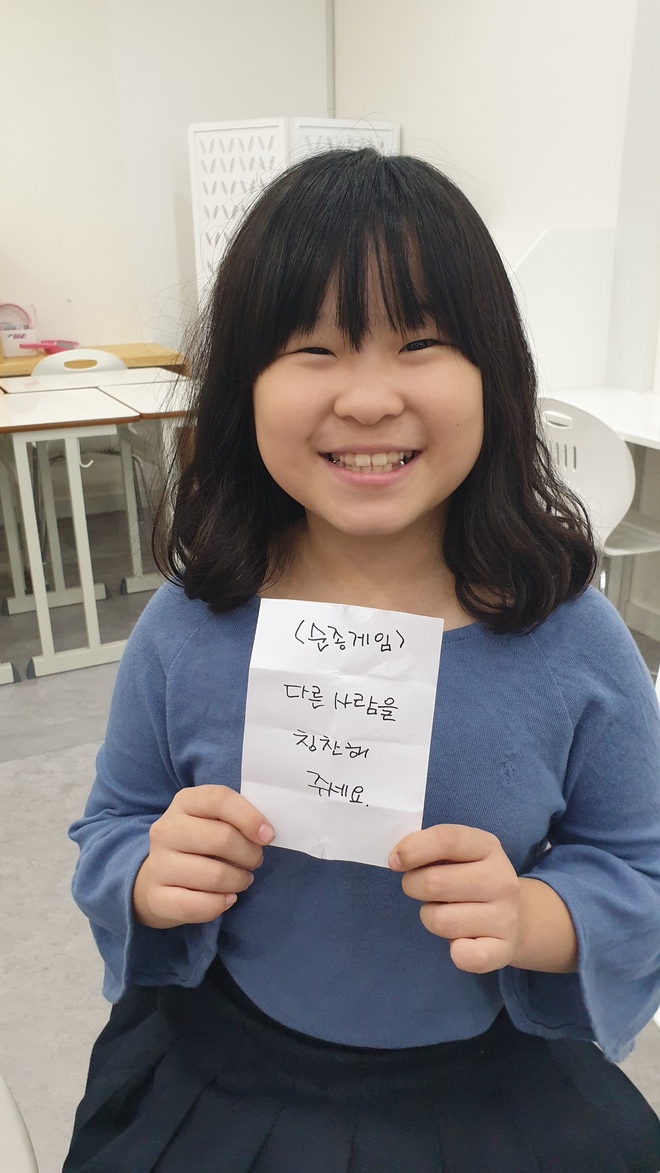 <순종게임>
다른 사람을
칭찬해
주세요.